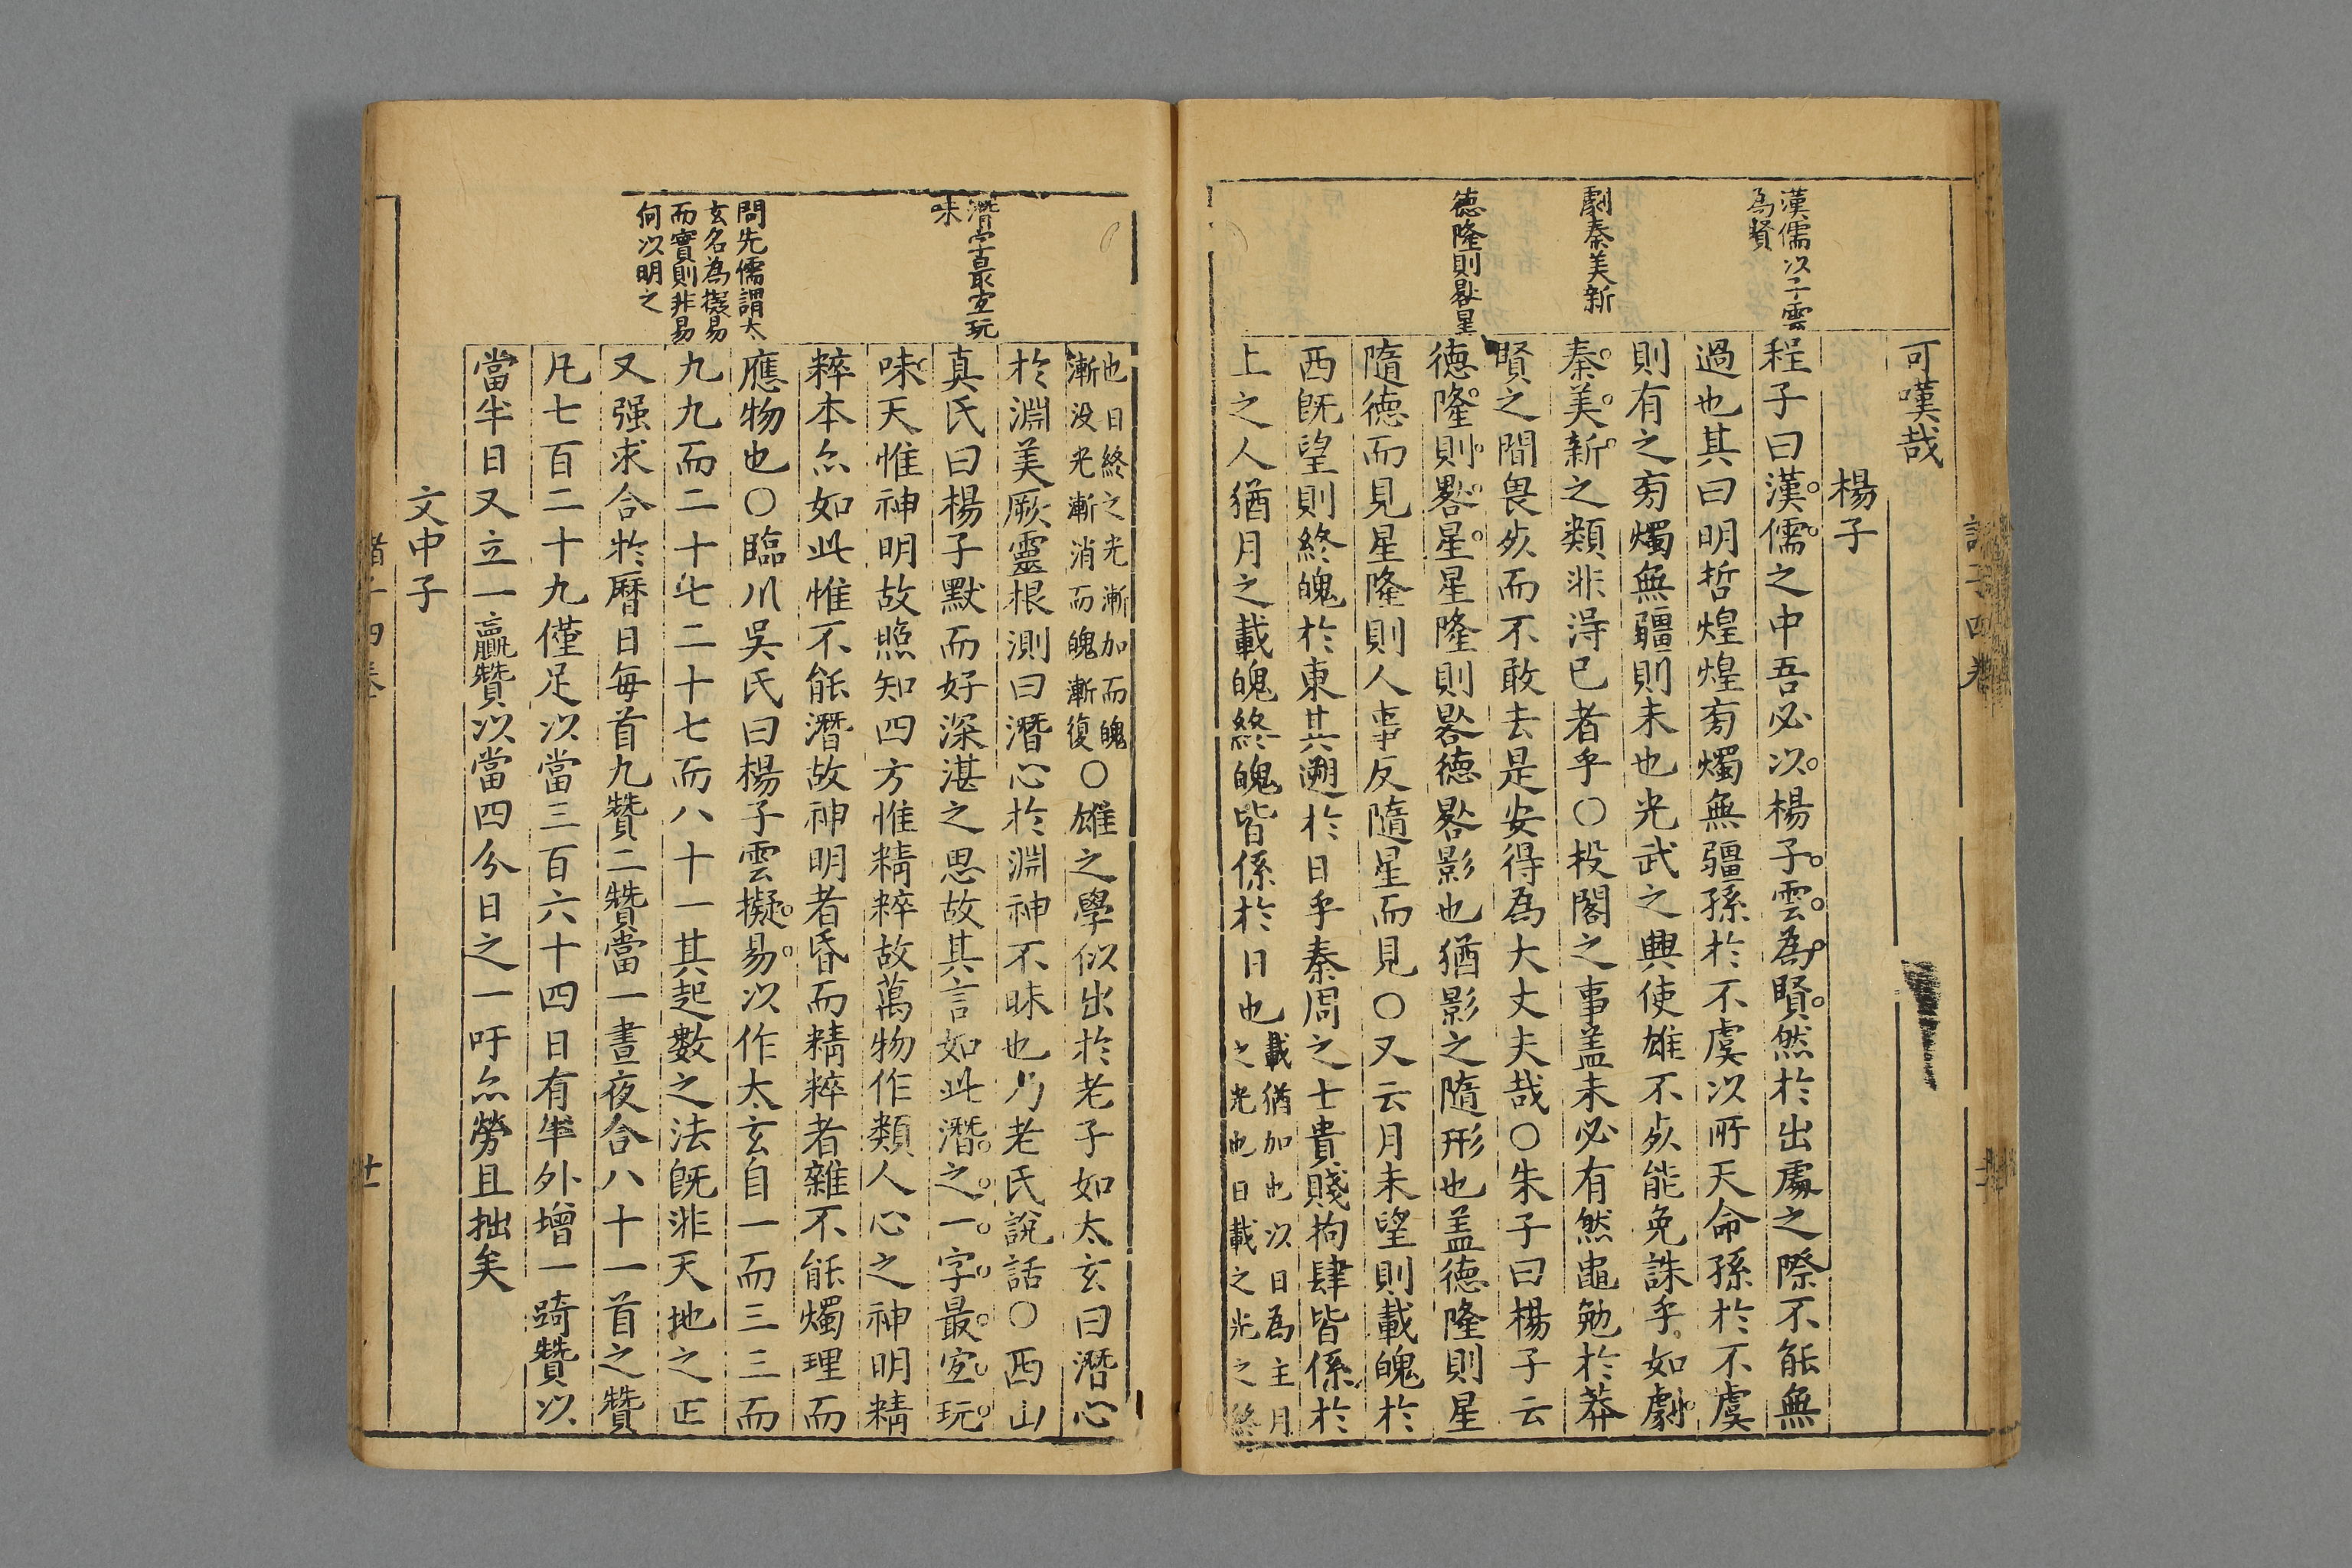 漢儒以子雲
為賢
劇秦美新
德隆則晷星
可嘆哉
楊子
程子曰漢儒之中吾必以楊子雲為賢然於出處之際不能無
過也其曰明哲煌煌旁燭無疆孫於不虞以所天命孫於不虞
則有之旁燭無疆則未也光武之興使雄不死能免誅乎如劇
秦美新之類非得已者乎○投閣之事盖未必有然黽勉於莽
賢之間畏死而不敢去是安得為大丈夫哉○朱子曰楊子云
德隆則晷星星隆則晷德晷影也猶影之隨形也盖德隆則星
隨德而見星隆則人事反隨星而見○又云月未望則載魄於
西既望則終魄於東其遡於日乎秦周之士貴賤拘肆皆係於
上之人猶月之載魄終魄皆係於日也載猶加也以日為主月
之光也日載之光之終
潛字最宜玩
味
問先儒謂太
玄名為擬易
而實則非易
何以明之
也日終之光漸加而魄
漸没光漸消而魄漸復○雄之學似出於老子如太玄曰潛心
於淵美厥靈根測曰潛心於淵神不昧也乃老氏說話○西山
真氏曰楊子默而好深湛之思故其言如此潛之一字最宜玩
味天惟神明故照知四方惟精粹故萬物作類人心之神明精
粹本亦如此惟不能潛故神明者昏而精粹者雜不能燭理而
應物也○臨川吳氏曰楊子雲擬易以作太玄自一而三三而
九九而二十七二十七而八十一其起數之法既非天地之正
又强求合於曆日每首九贊二贊當一晝夜合八十一首之贊
凡七百二十九僅足以當三百六十四日有半外增一踦贊以
當半日又立一嬴贊以當四分日之一吁亦勞且拙矣
文中子